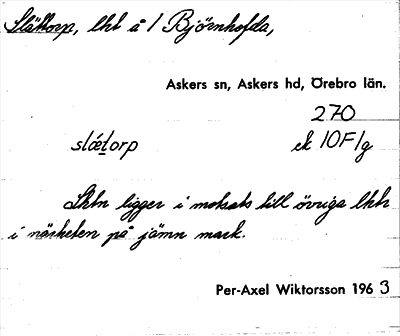 Slättorp, lht å 1 Björnhofda,
Askers sn, Askers hd, Örebro län.
270
slǽt̲orp ek 10F/g
Lhtn ligger i motsats till övriga lhtr
i närheten på jämn mark.
Per-Axel Wiktorsson 1963